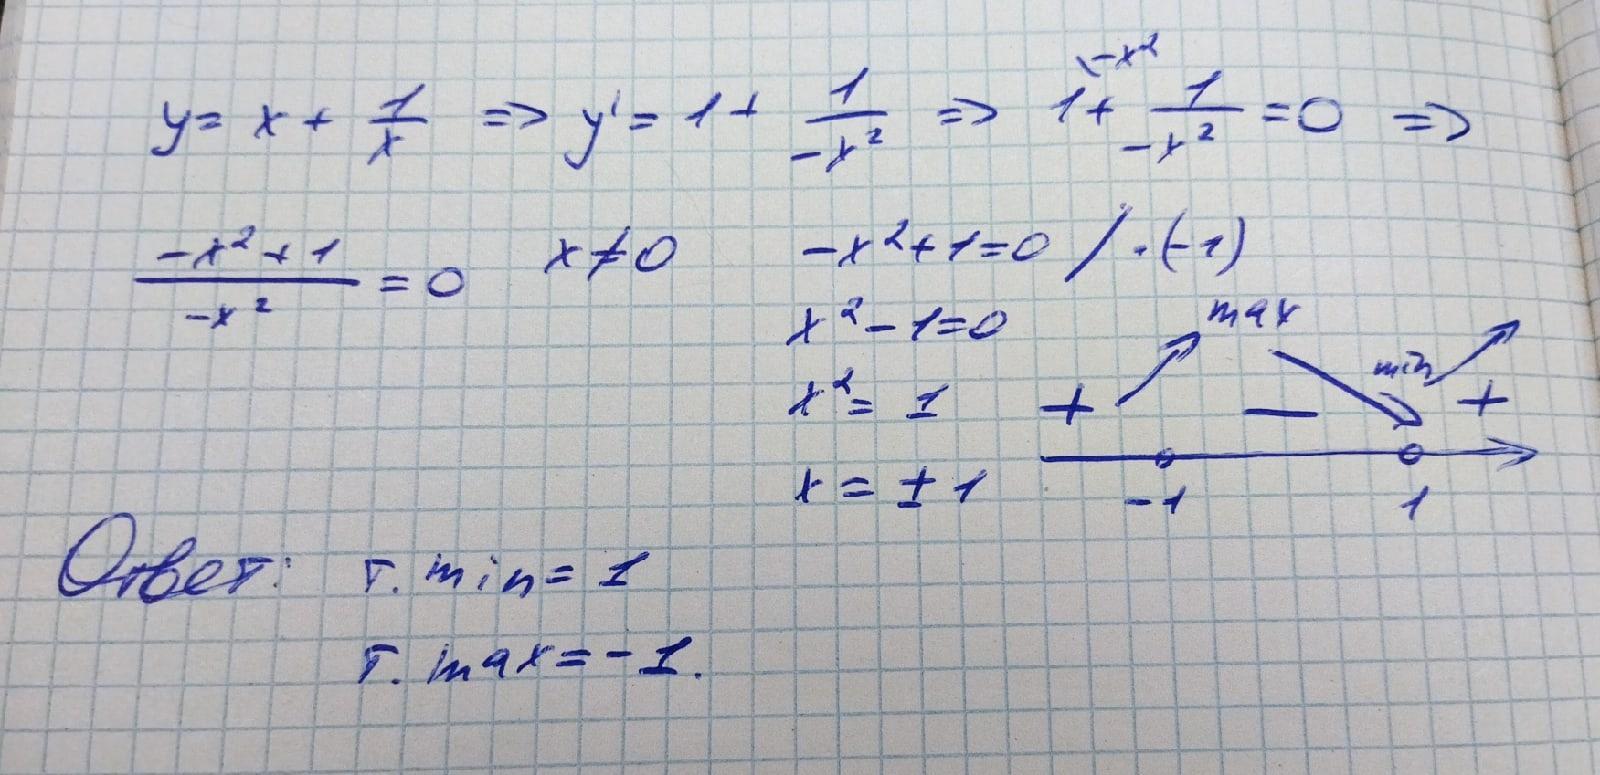 y = x + 1/x => y' = 1 + 1/-x² => 1\-x² + 1/-x² = 0 =>
-x² + 1/-x² = 0 x ≠ 0 -x² + 1 = 0 / · (-1)
x² - 1 = 0 max
x² = 1 + — min +
x = ± 1 -1 1
Ответ: т. min = 1
т. max = -1.